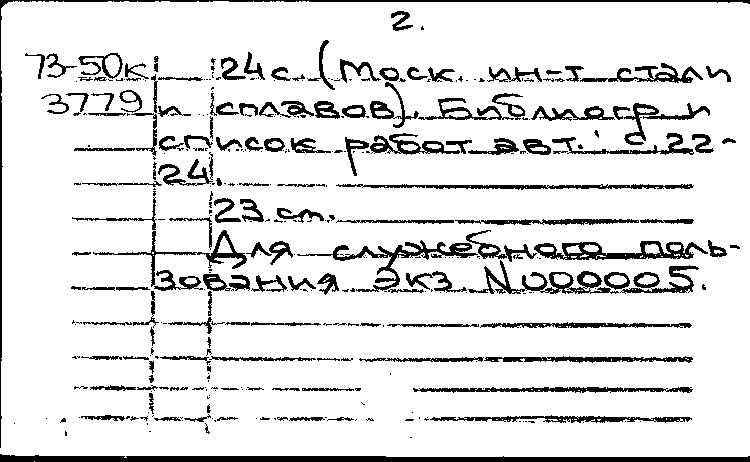 2.
73-50к 24 с. (Моск. ин-т стали
3779 и сплавов). Библиогр и
список работ авт.: с. 22-
24.
23 см.
Для служебного поль-
зования Экз N000005.